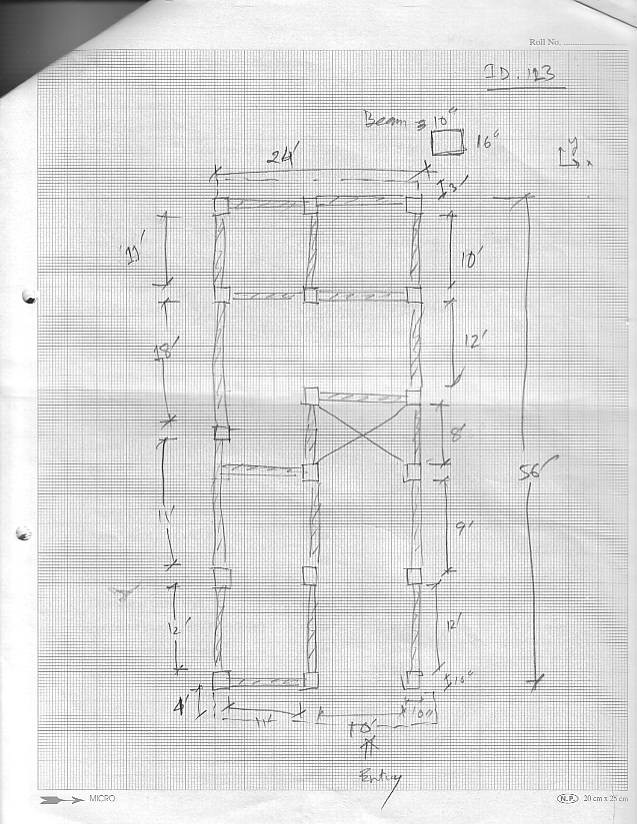 Roll No. ....................
ID. 123
Beam = 10"
16"
y
x
24'
3'
11'
10'
18'
12'
8'
56'
11'
9'
12'
12'
10"
4'
11'
10'
10"
Entry
MICRO
N.P. 20 cm x 25 cm